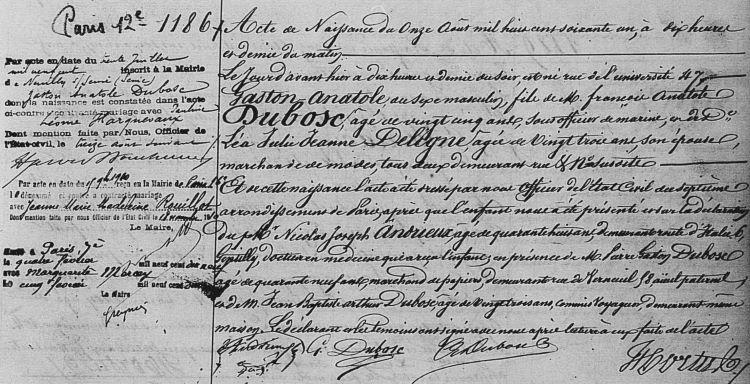 Paris 12e 1186
Par acte en date du trente Juillet
mil neuf cent inscrit à la Mairie
de Neuilly s/ Seine (Seine)
Gaston Anatole Dubosc
dont la naissance est constatée dans l'acte
ci-contre a contracté mariage avec
Léonie
Dont mention faite par Nous, Officier de
l'État-civil, le treize août suivant
Par acte en date du 1910 reçu en la Mairie de Paris
le dénommé ci-contre a contracté mariage
avec Jeanne Marie Madeleine Rouillot
Dont mention faite par nous officier de l'état civil le 18 novembre 1910
Le Maire,
Marié à Paris, 7e
le quatre février mil neuf cent
avec Marguerite
Le cinq février mil neuf cent
Le Maire
Acte de Naissance du Onze Août mil huit cent soixante un, à dix heures
et demie du matin
Le jour d'avant hier à dix heures et demie du soir est né rue de l'université 47
Gaston Anatole, du sexe masculin, fils de M. françois Anatole
Dubosc, agé de vingt cinq ans, Sous officier de marine, et de De
Léa Julie Jeanne Deligne, agée de vingt trois ans son épouse,
marchande de modes, tous deux demeurant rue & No susdits
Et de cette naissance l'acte a été dressé par nous Officier de l'État Civil du septième
arrondissement de Paris, après que l'enfant nous a été présenté et sur la déclaration
du Mr. Nicolas Joseph Andreux agé de quarante huit ans, demeurant route d'Italie 6,
Gentilly, docteur en médecine qui a vu l'enfant, en présence de M. Pierre Gaston Dubosc
agé de quarante neuf ans, marchand de papiers, demeurant rue de Verneuil 51 aïeul paternel
et de M. Jean Baptiste Arthur Dubosc, agé de vingt trois ans, commis Voyageur, demeurant même
maison. Le déclarant et les témoins ont signé avec nous après lecture à eux faite de l'acte
G. Dubosc A Dubosc Hortus